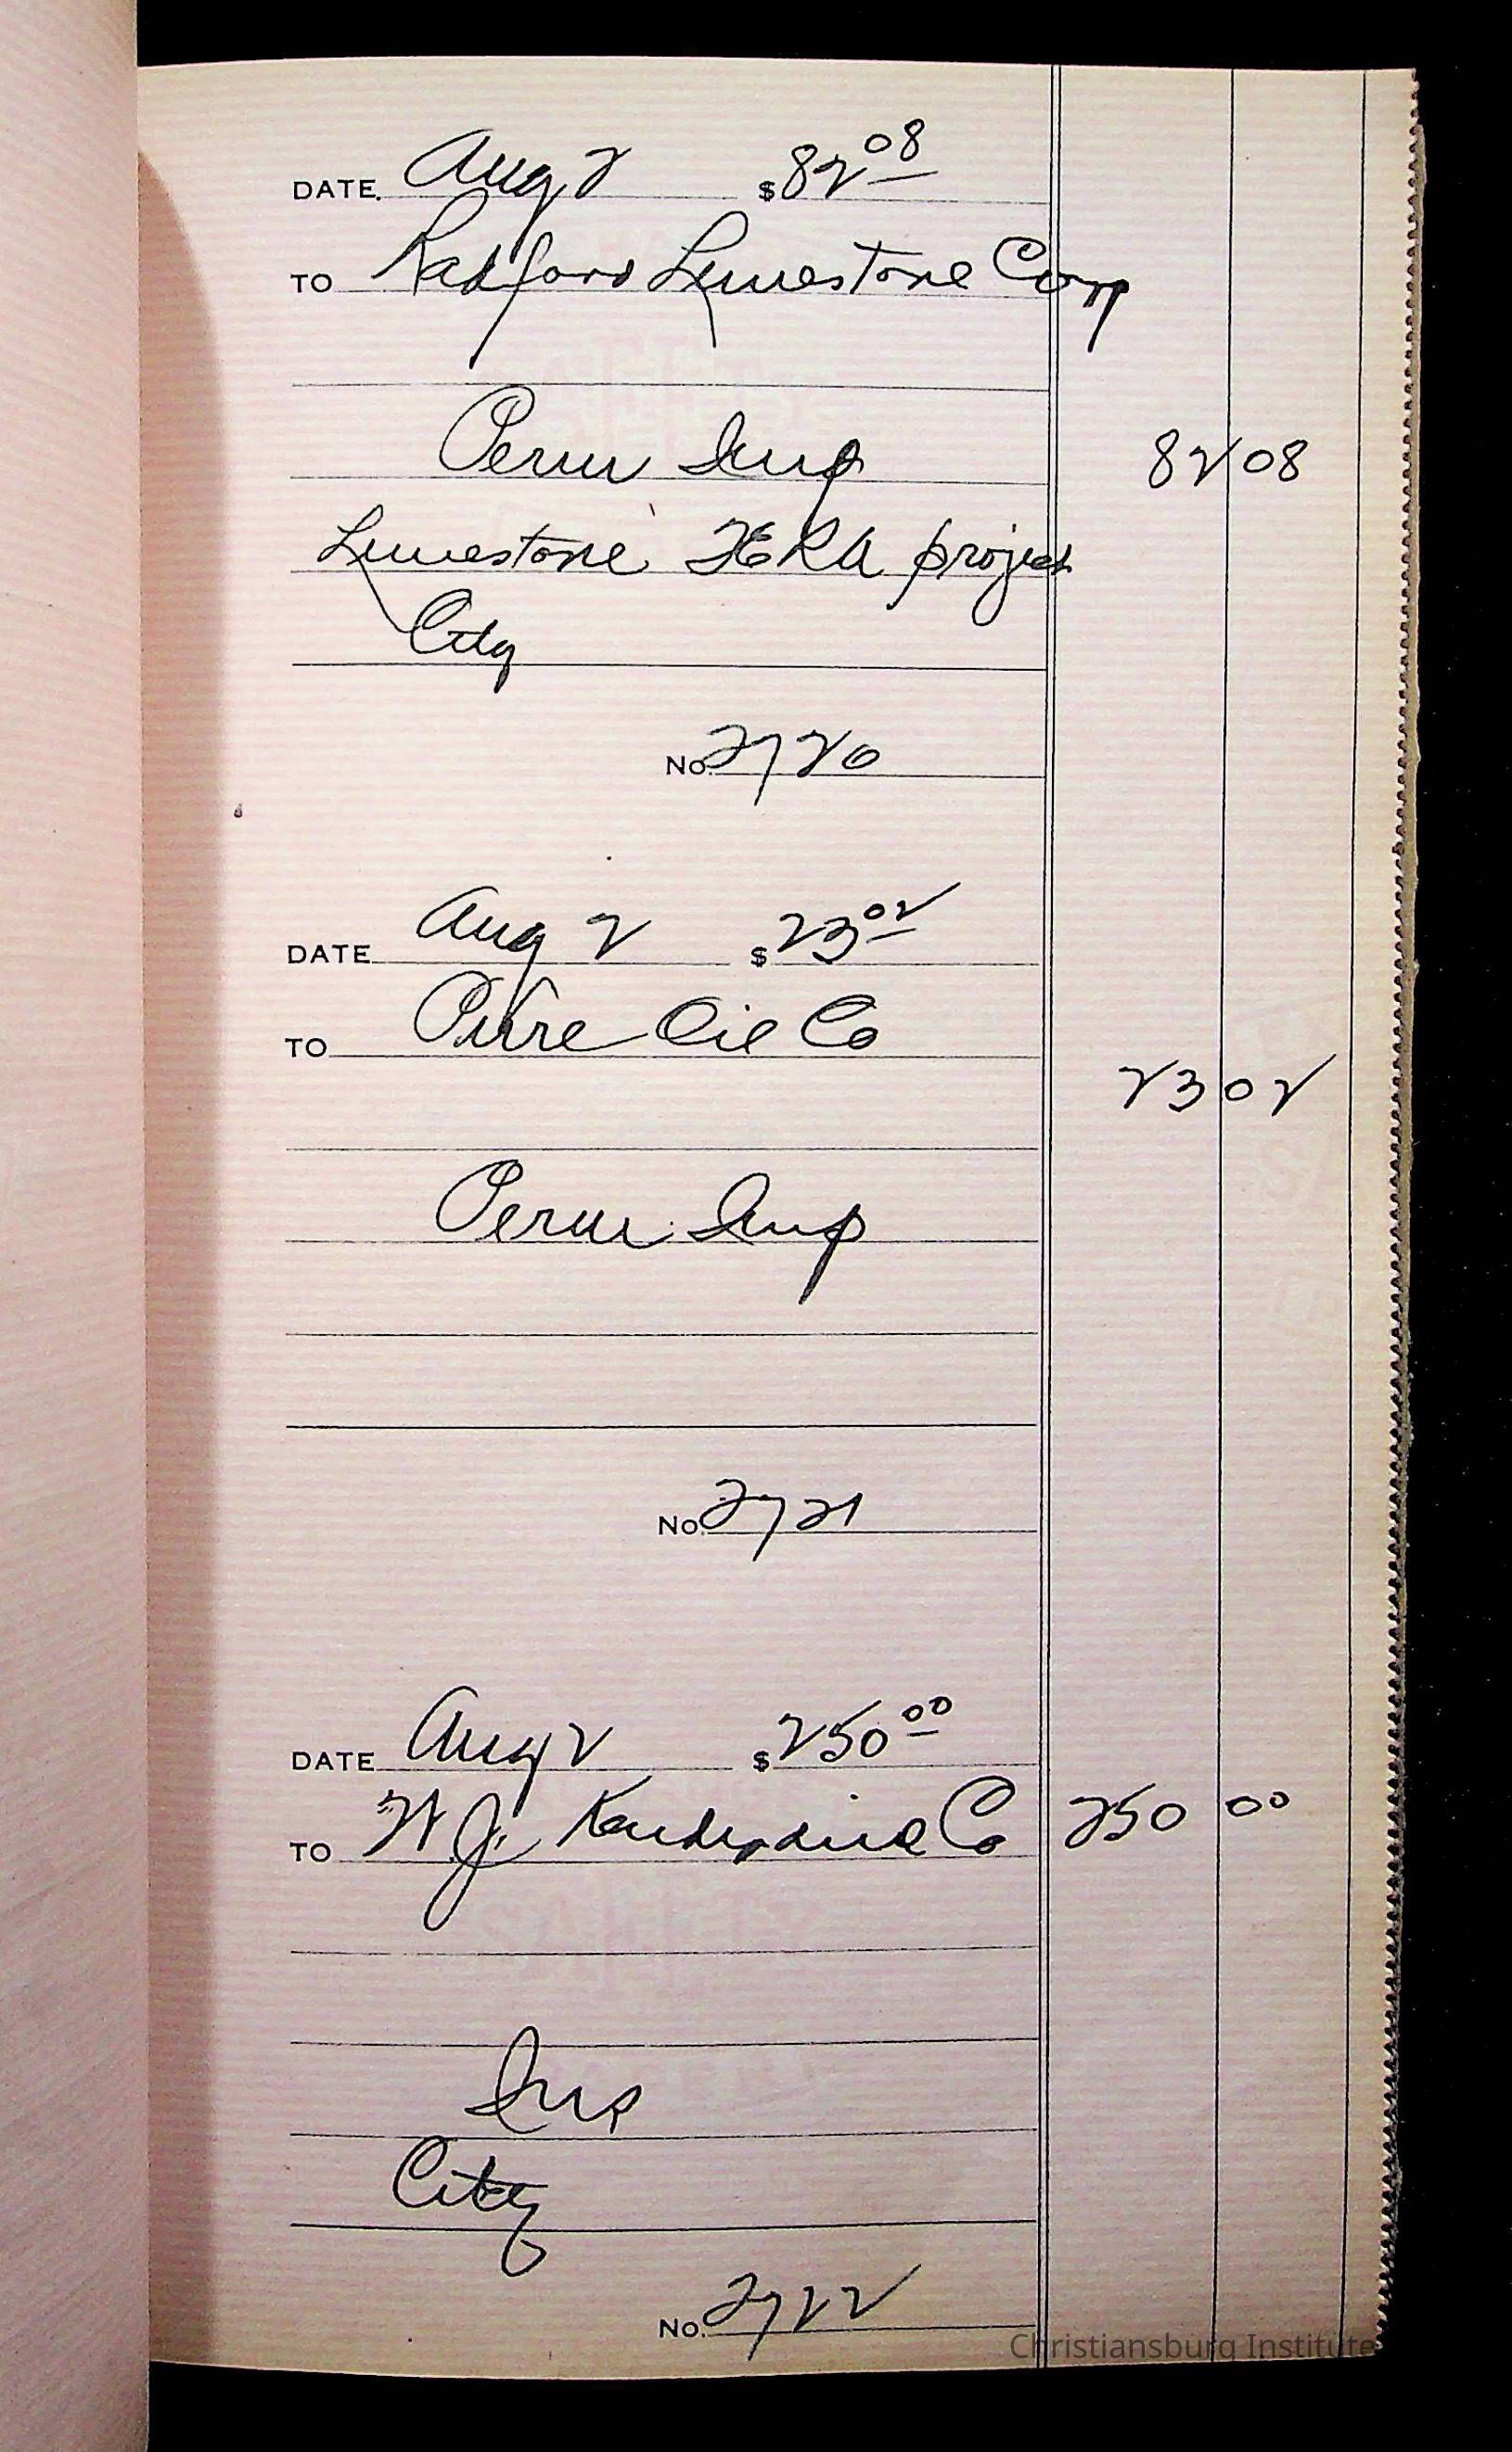 DATE Aug 2 $82 08
TO Radford Limestone Corp
Perm Imp 82 08
Limestone FERA project
City
No. 2720
DATE Aug 2 $23 02
TO Pure Oil Co
23 02
Perm Imp
No. 2721
DATE Aug 2 $250 00
TO W.J. Co 250 00
Ins
City
No. 2722
Christiansburg Institute